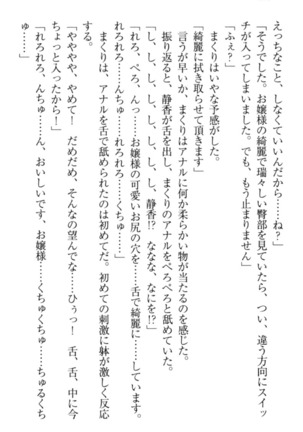 えっちなこと、しなくていいんだから……ね?」
「そうでした。お嬢様の綺麗で瑞々しい臀部を見ていたら、つい、違う方向にスイッ
チが入ってしまいました。でも、もう止まりません」
「ふぇ?」
まくりはいやな予感がした。
「綺麗に拭き取らせて頂きます」
言うが早いか、まくりはアナルに何か柔らかい物が当たるのを感じた。
振り返ると、静香が舌を出し、まくりのアナルをぺろぺろと舐めていた。
「し、し、し、し、し、し、静香!? ななな、なにを!?」
「れろ、ぺろ、んっ……お嬢様の可愛いお尻の穴を……舌で綺麗に……しています。
れろれろ……んちゅ……れろれろ……くちゅ……」
まくりは、アナルを舌で舐められたのは初めてだ。初めての刺激に躰が激しく反応
する。
「ややややや、やめてー! だめだめ、そんなの望んでな……ひぅっ! 舌、舌、中に今
ちょっと入ったから!」
「れろれろ、んちゅ……ん、おいしいです、お嬢様……くちゅくちゅ……ちゅるくち
ゅ……」